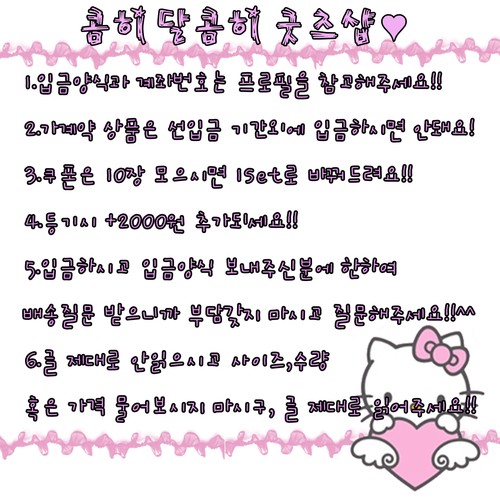 콤히달콤히굿즈샵♥
1.입금양식과 계좌번호는 프로필을 참고해주세요!!
2.가계약 상품은 선입금 기간외에 입금하시면 안돼요!
3.쿠폰은 10장 모으시면 1set로 바꿔드려요!!
4.등기시 +2000원 추가되세요!!
5.입금하시고 입금양식 보내주신분에 한하여
배송질문 받으니까 부담갖지 마시고 질문해주세요!!^^
6.글 제대로 안읽으시고 사이즈,수량
혹은 가격 물어보시지 마시구, 글 제대로 읽어주세요!!